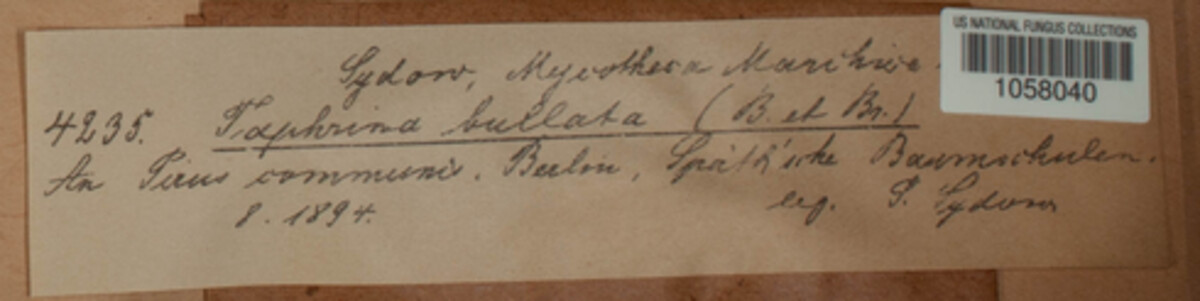 Sydow, Mycotheca Marchica.
4235. Taphrina bullata (B. et Br.)
An Pirus communis. Berlin, Späth'sche Baumschulen.
8. 1894. leg. P. Sydow
US NATIONAL FUNGUS COLLECTIONS
1058040